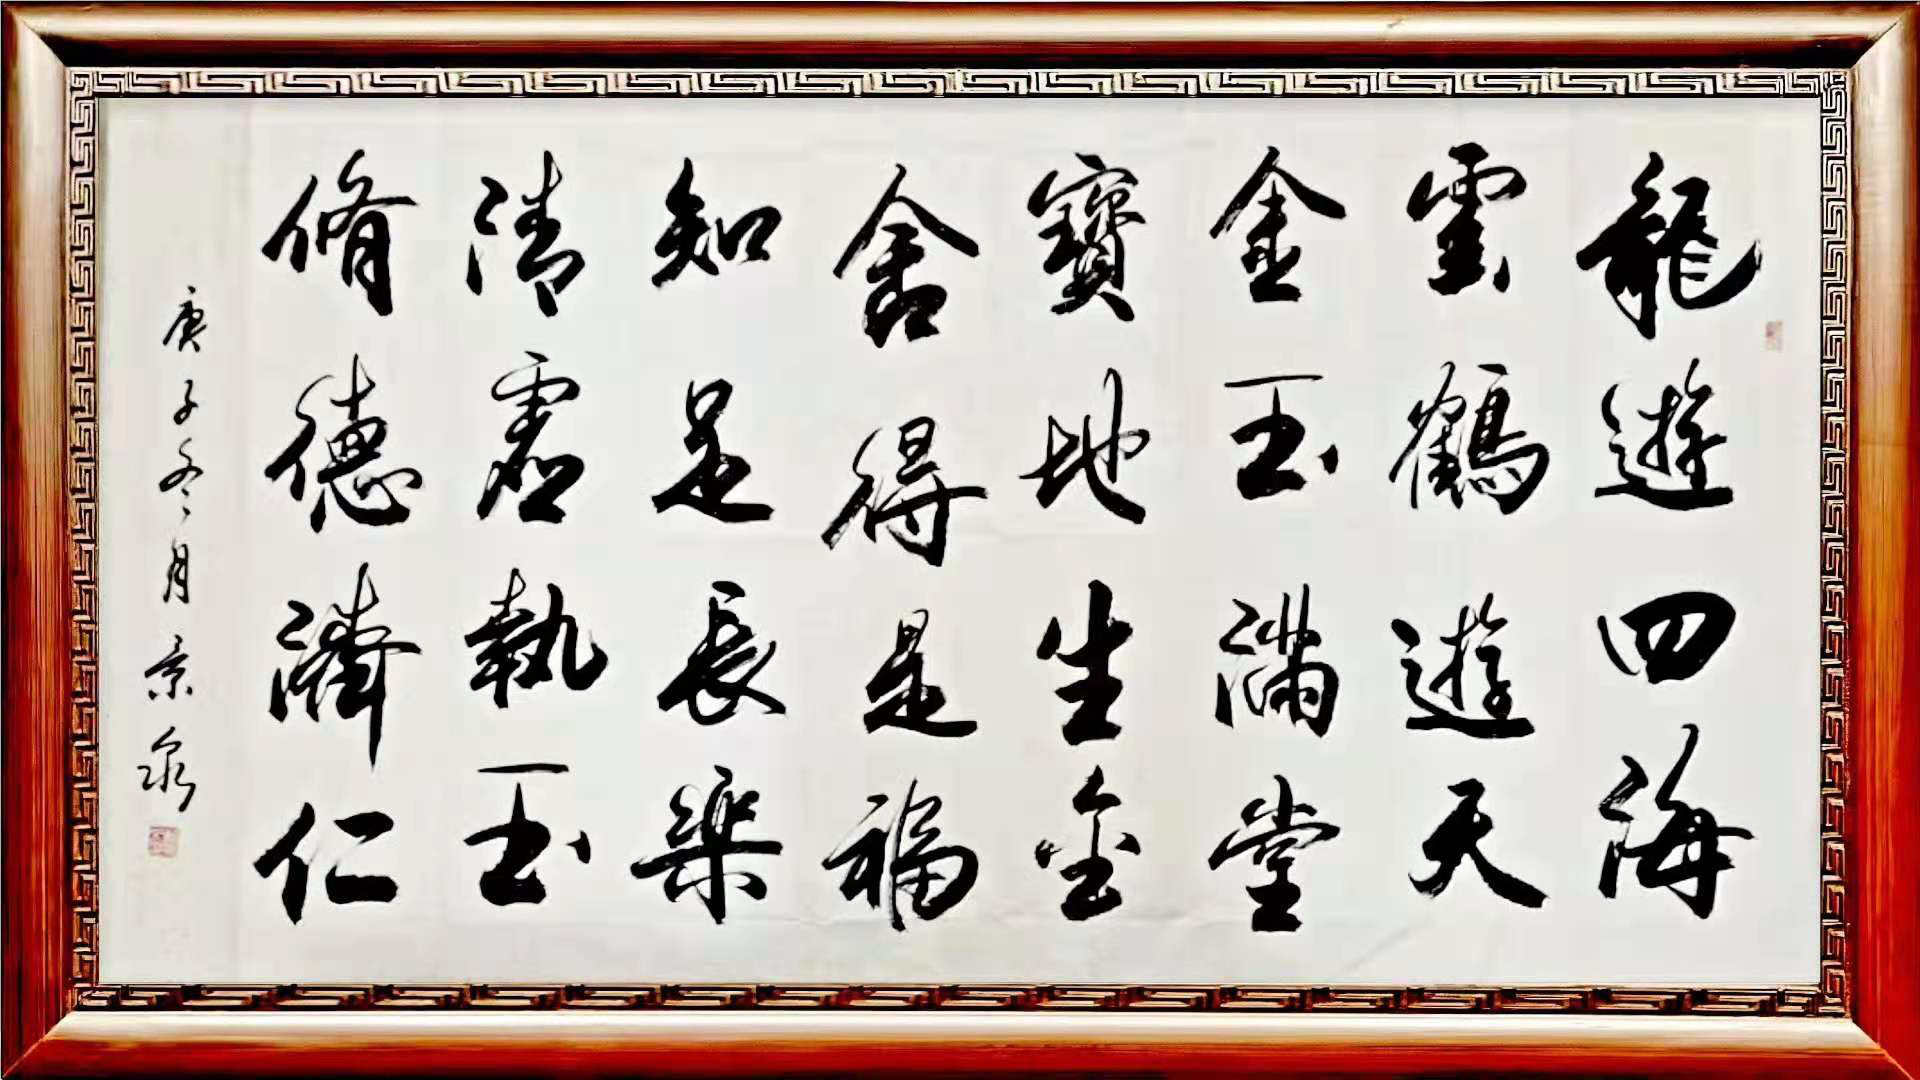 龍遊四海
雲鶴遊天
金玉滿堂
寶地生金
舍得是福
知足長樂
清虛執玉
脩德濟仁
庚子冬月京泉